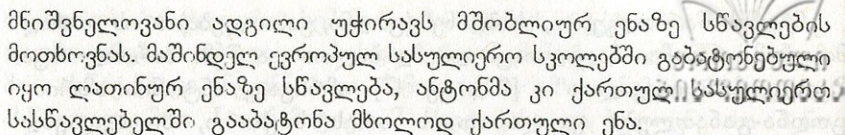 მნიშვნელოვანი ადგილი უჭირავს მშობლიურ ენაზე სწავლების
მოთხოვნას. მაშინდელ ევროპულ სასულიერო სკოლებში გაბატონებული
იყო ლათინურ ენაზე სწავლება, ანტონმა კი ქართულ სასულიერო
სასწავლებელში გააბატონა მხოლოდ ქართული ენა.